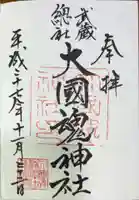 奉拝
武蔵
總社
大國魂神社
平成二十七年十一月二十二日